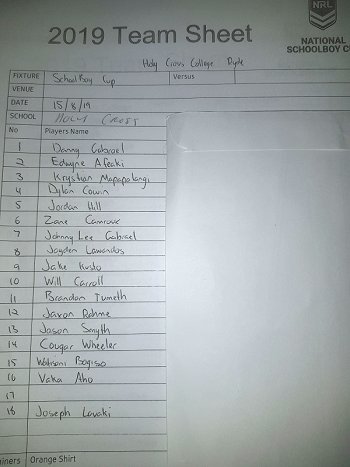 NRL
2019 Team Sheet
NATIONAL
SCHOOLBOY C
Holy Cross College Ryde
FIXTURE SchoolBoy Cup Versus
VENUE
DATE 15/8/19
SCHOOL HOLY CROSS
No Players Name
1 Danny Gabrael
2 Edwyne Afeaki
3 Krystian Mapapalangi
4 Dylan Cowin
5 Jordan Hill
6 Zane Camroux
7 Johnny Lee Gabrael
8 Jayden Lawandos
9 Jake Kusto
10 Will Carroll
11 Brandon Tumeth
12 Javon Rahme
13 Jason Smyth
14 Cougar Wheeler
15 Bogiso
16 Vaka Aho
17
18 Joseph Lavaki
ainers Orange Shirt